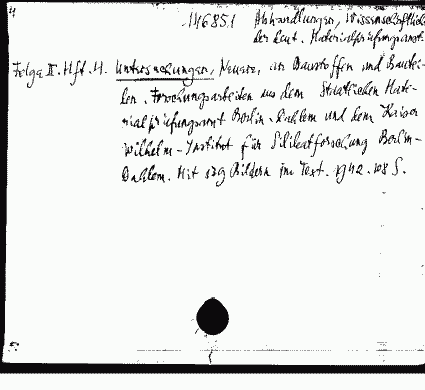 114685.1 Abhandlungen, Wissenschaftliche
der deut. Materialprüfungsanst.
Folge II. Hft. 4. Untersuchungen, Neuere, an Baustoffen und Bautei-
len. Forschungsarbeiten aus dem Staatlichen Mate-
rialprüfungsamt Berlin-Dahlem und dem Kaiser
Wilhelm-Institut für Silikatforschung Berlin-
Dahlem. Mit 129 Bildern im Text. 1942. 108 S.